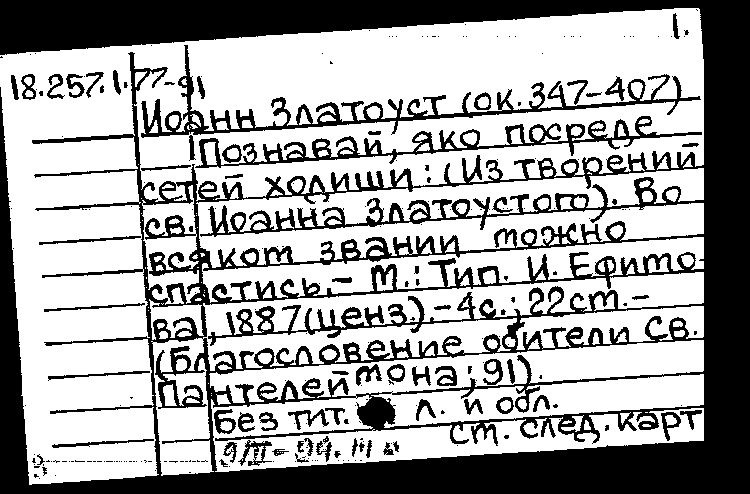 1.
18.257.1.77-91
Иоанн Златоуст (ок. 347-407)
Познавай, яко посреде
сетей ходиши: (Из творений
св. Иоанна Златоустого). Во
всяком звании можно
спастись. - М.: Тип. И. Ефимо-
ва, 1887 (ценз.). - 4с.; 22см. -
(Благословение обители св.
Пантелеймона; 91).
Без тит. л. и обл.
см. след. карт